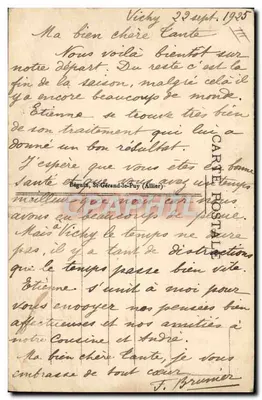 Vichy 22 sept. 1925
Ma bien chère Tante
Nous voilà bientôt sur
notre départ. Du reste c'est la
fin de la saison, malgré cela il
y a encore beaucoup de monde.
Etienne se trouve très bien
de son traitement qui lui a
donné un bon résultat.
J'espère que vous êtes en bonne
santé et que vous avez un temps
meilleur car nous
avons eu beaucoup de pluie.
Mais à Vichy le temps ne dure
pas, il y a tant de distractions
que le temps passe bien vite.
Etienne s'unit à moi pour
vous envoyer nos pensées bien
affectueuses et nos amitiés à
notre Cousine et André.
Ma bien chère Tante, je vous
embrasse de tout cœur
J. Brunier
CARTE POSTALE
Béguin, St-Gérand-le-Puy (Allier)